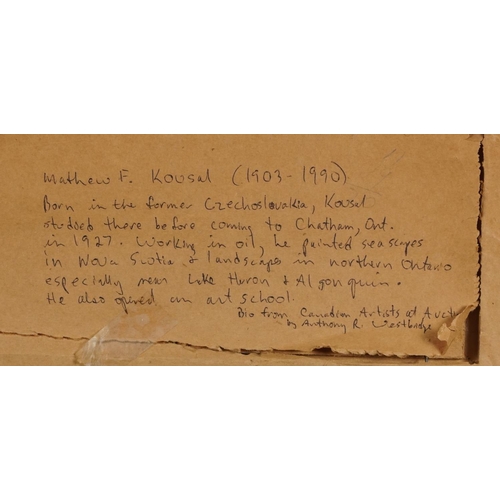 Mathew F. Kousal (1903-1990)
Born in the former Czechoslovakia, Kousal
studied there before coming to Chatham, Ont.
in 1927. Working in oil, he painted seascapes
in Nova Scotia & landscapes in northern Ontario
especially near Lake Huron & Algonquin.
He also opened an art school.
Bio from Canadian Artists at Auct
by Anthony R. Westbridge